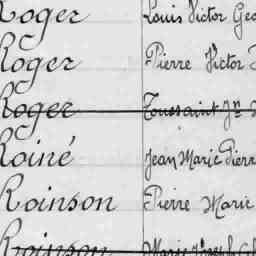 Roger Louis Victor Geo
Roger Pierre Victor
Roger Toussaint Jn
Roiné Jean Marie Pierr
Roinson Pierre Marie
Roinson Marie Joseph